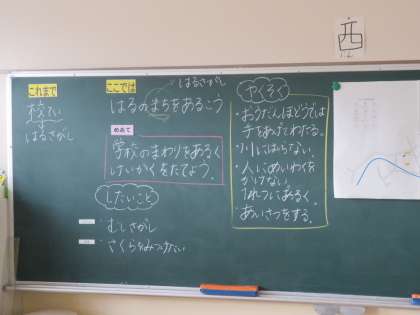 酉
これまで
校てい
はるさがし
ここでは
はるさがし
はるのまちをあるこう
めあて
学校のまわりをあるく
けいかくをたてよう。
したいこと
むしさがし
さくらをみつけたい
やくそく
・おうだんほどうでは
手をあげてわたる。
・川にはいらない。
・人にめいわくを
かけない。
1れつであるく。
・あいさつをする。